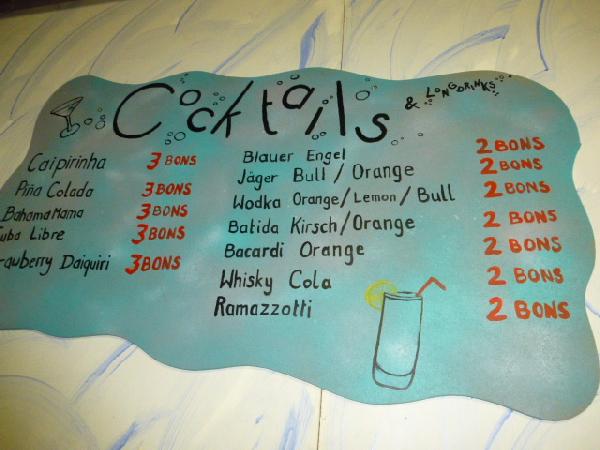 Cocktails & LONGDRINKS
Caipirinha 3 BONS
Piña Colada 3 BONS
Bahama Mama 3 BONS
Cuba Libre 3 BONS
rawberry Daiquiri 3 BONS
Blauer Engel 2 BONS
Jäger Bull / Orange 2 BONS
Wodka Orange / Lemon / Bull 2 BONS
Batida Kirsch / Orange 2 BONS
Bacardi Orange 2 BONS
Whisky Cola 2 BONS
Ramazzotti 2 BONS